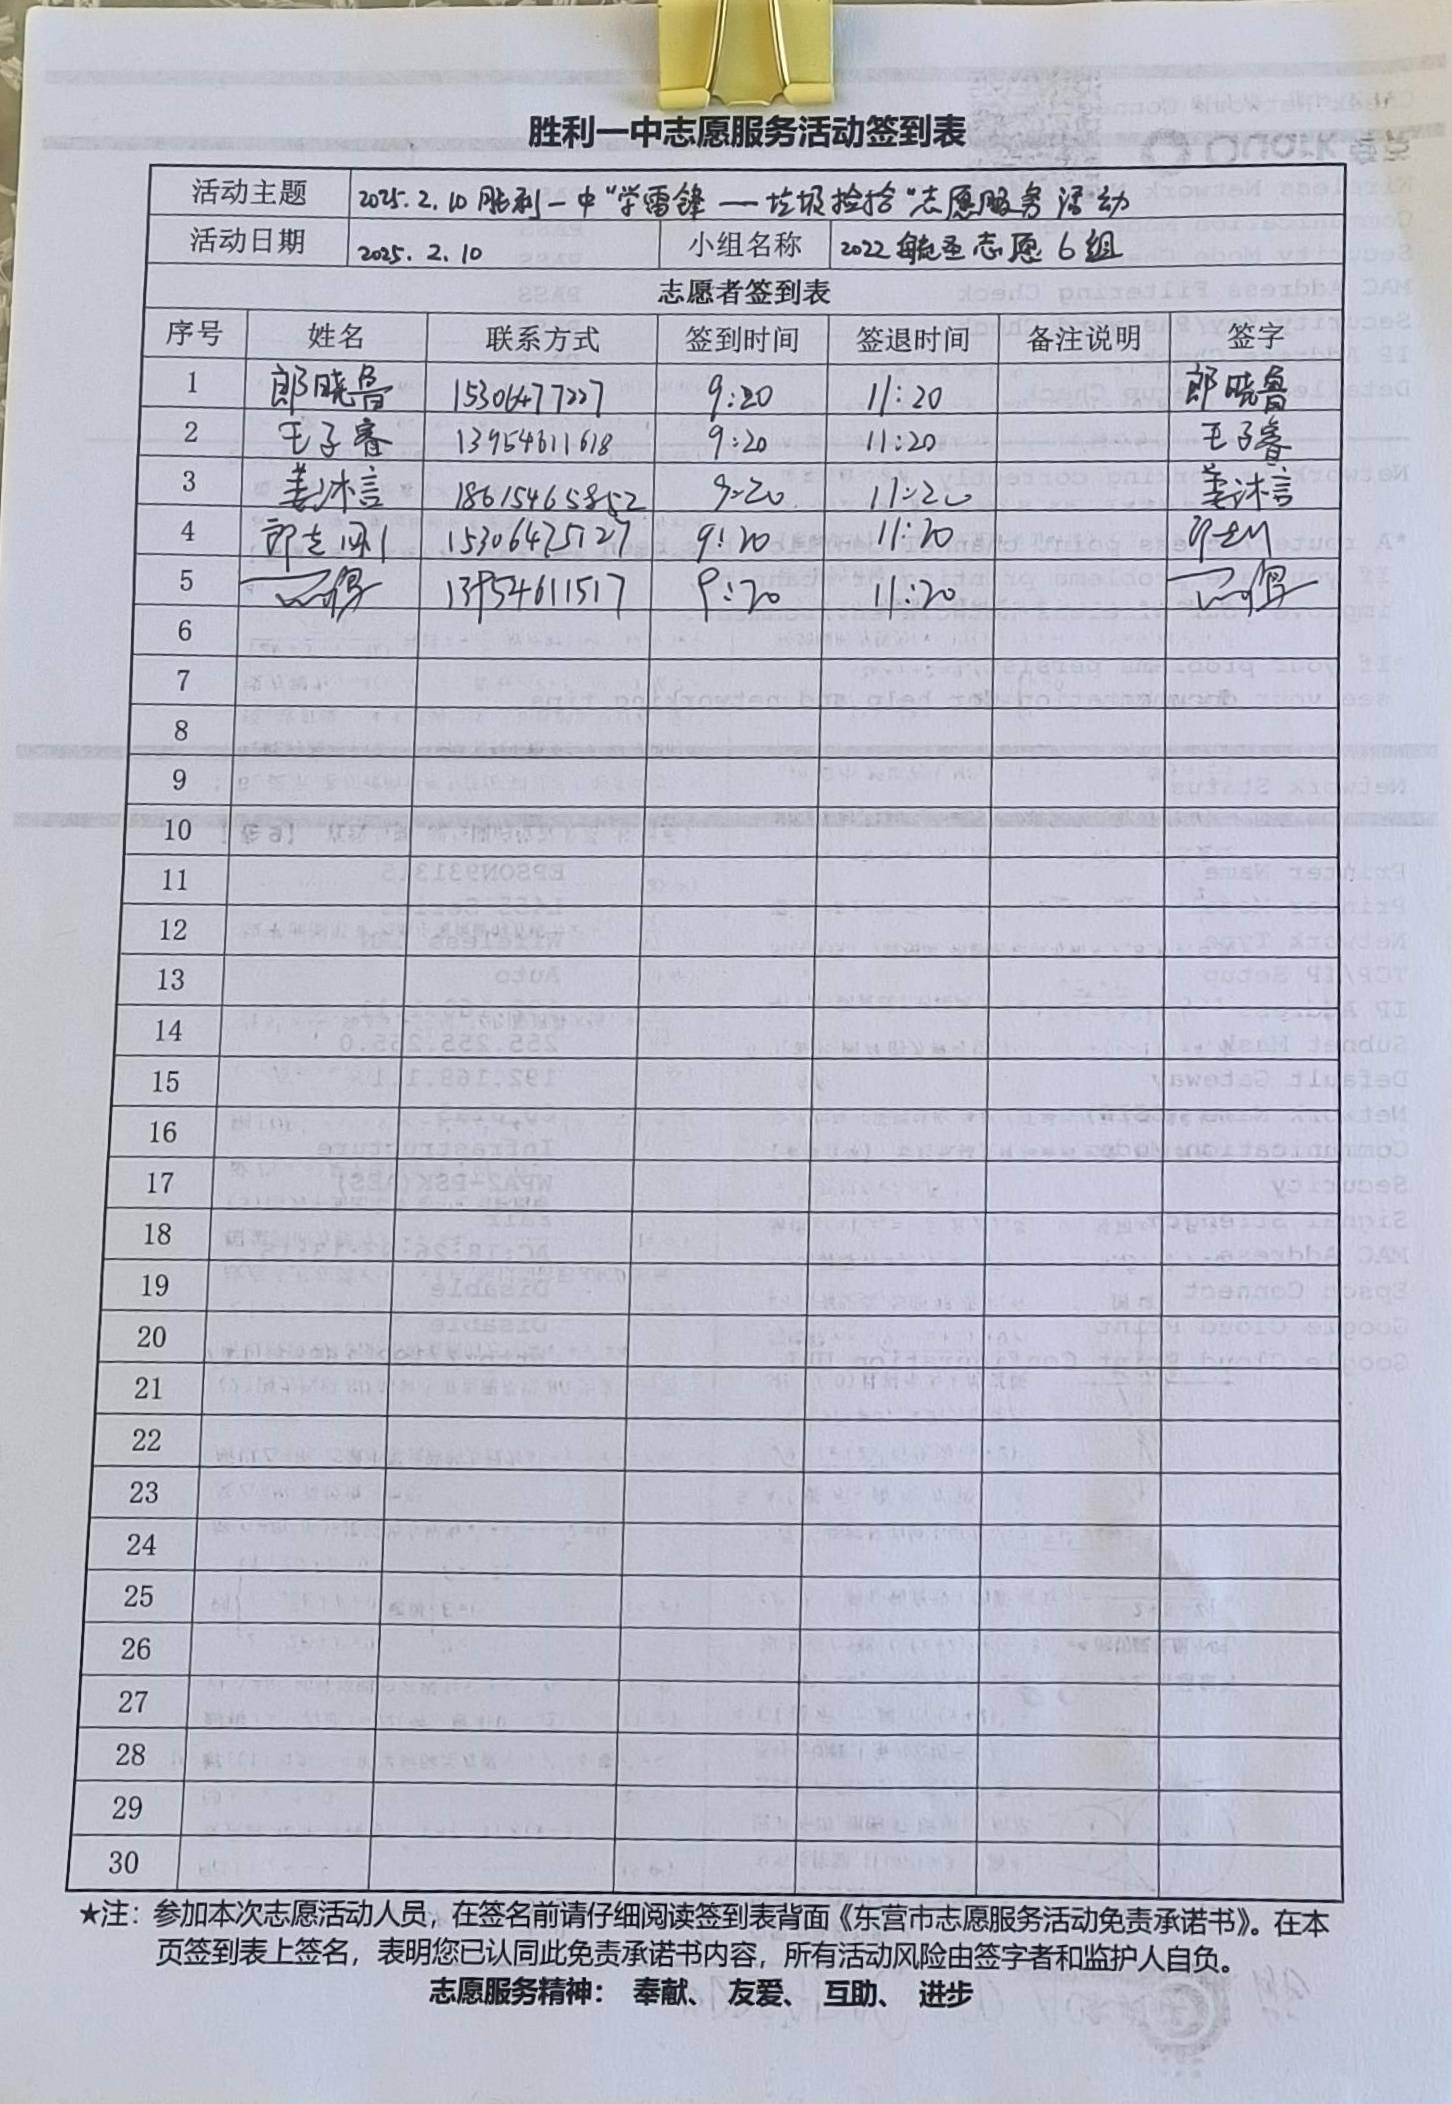 胜利一中志愿服务活动签到表
活动主题 2025.2.10 胜利一中“学雷锋——垃圾捡拾”志愿服务活动
活动日期 2025.2.10 小组名称 2022 志愿6组
志愿者签到表
序号 姓名 联系方式 签到时间 签退时间 备注说明 签字
1 郎晓鲁 15306477227 9:20 11:20 郎晓鲁
2 王子睿 13954611618 9:20 11:20 王子睿
3 姜沐言 18615465852 9:20 11:20 姜沐言
4 15306475127 9:20 11:20
5 13954611517 9:20 11:20
6
7
8
9
10
11
12
13
14
15
16
17
18
19
20
21
22
23
24
25
26
27
28
29
30
★注：参加本次志愿活动人员，在签名前请仔细阅读签到表背面《东营市志愿服务活动免责承诺书》。在本
页签到表上签名，表明您已认同此免责承诺书内容，所有活动风险由签字者和监护人自负。
志愿服务精神： 奉献、 友爱、 互助、 进步